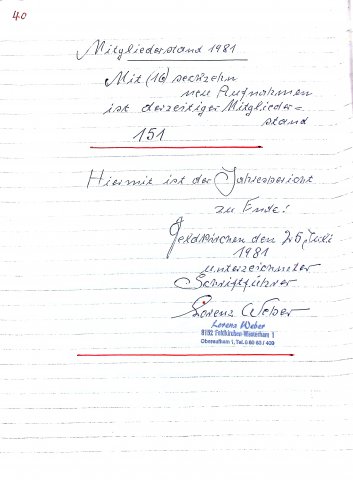 40
Mitgliederstand 1981
Mit (16) sechzehn
neu Aufnahmen
ist derzeitiger Mitglieder=
stand
151
Hiermit ist der Jahresbericht
zu Ende!
Feldkirchen den 26, Juli
1981
unterzeichneter
Schriftführer
Lorenz Weber
Lorenz Weber
8152 Feldkirchen-Westerham 1
Oberaufham 1, Tel. 0 80 63 / 409